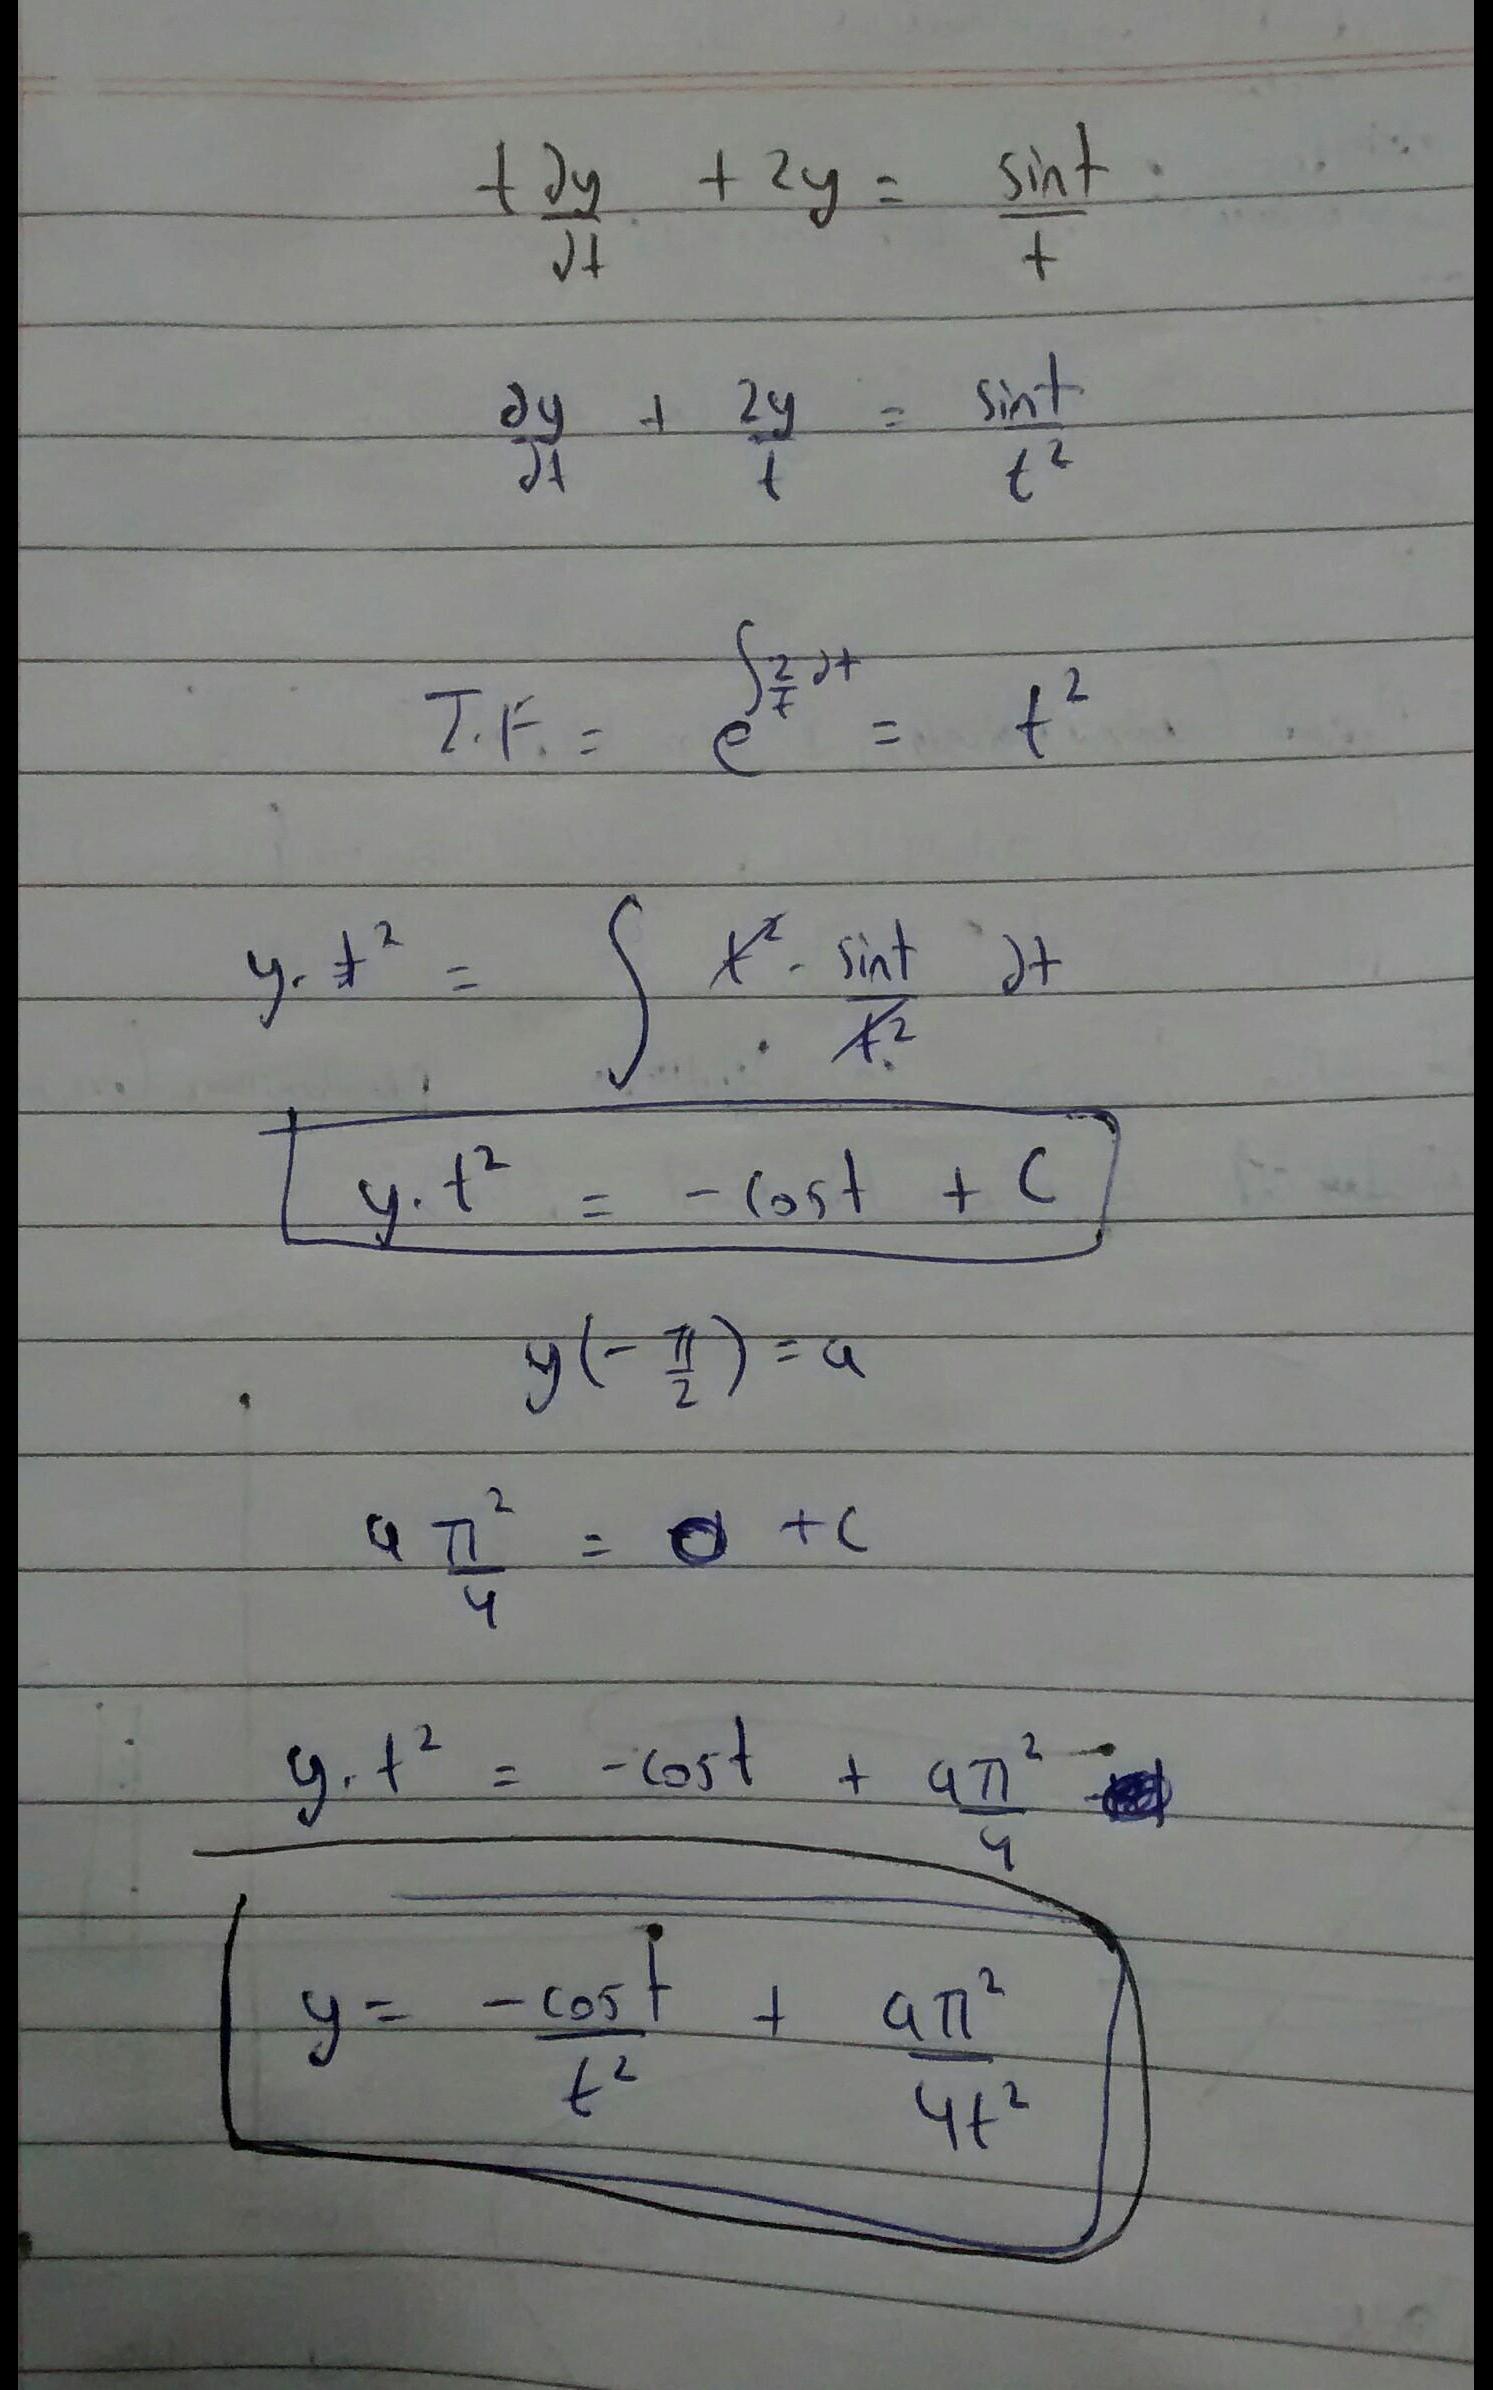 t ∂y/∂t + 2y = sint/t
∂y/∂t + 2y/t = sint/t²
I.F. = e^∫2/t ∂t = t²
y.t² = ∫ t². sint/t² ∂t
y.t² = -cost + C
y(-π/2) = a
aπ²/4 = 0 + C
y.t² = -cost + aπ²/4
y = -cost/t² + aπ²/4t²